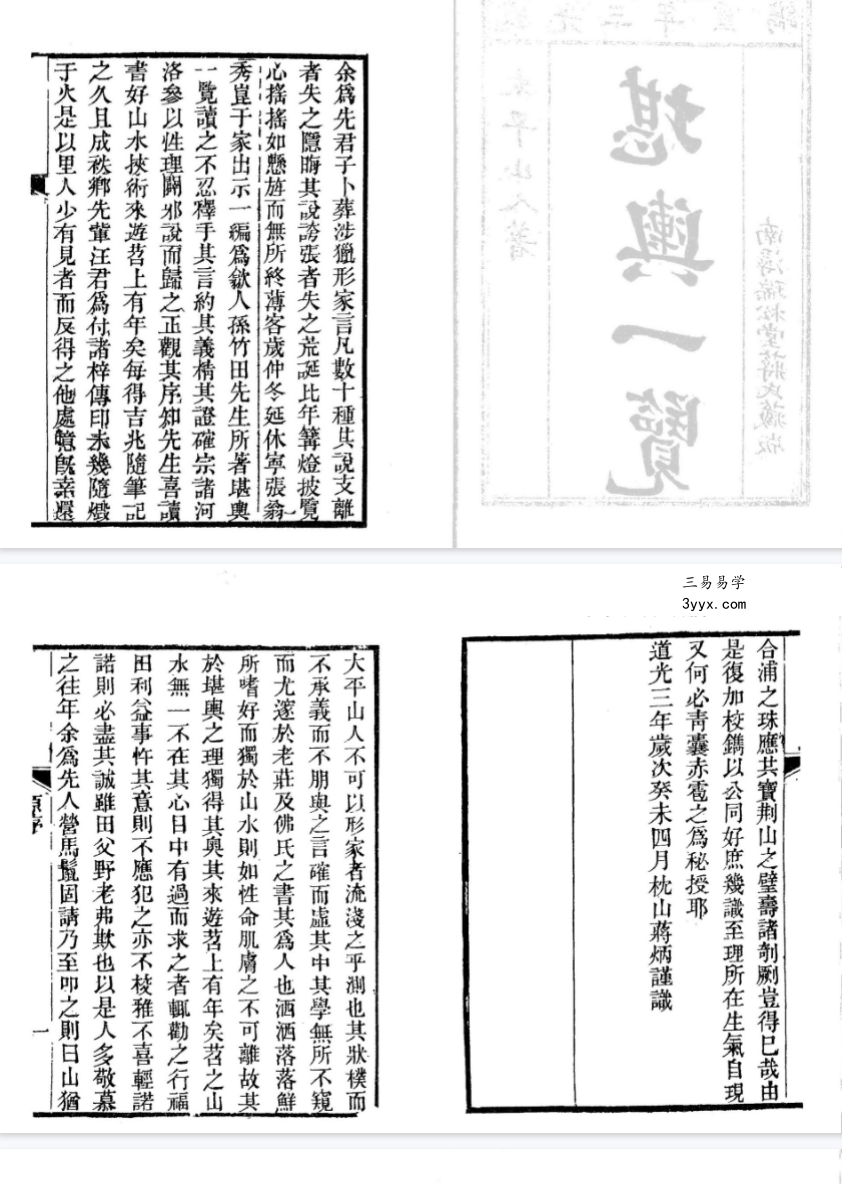 堪輿一覽
太平山人著
南潯瑞松堂蔣氏藏板
余爲先君子卜葬涉獵形家言凡數十種其說支離
者失之隱晦其說誇張者失之荒誕比年篝燈披覽
心搖搖如懸旌而無所終薄客歲仲冬延休寧張翁
秀崑于家出示一編爲歙人孫竹田先生所著堪輿
一覽讀之不忍釋手其言約其義精其證確宗諸河
洛參以性理闢邪說而歸之正觀其序知先生喜讀
書好山水挾術來遊苕上有年矣每得吉兆隨筆記
之久且成袟鄉先輩汪君爲付諸梓傳印未幾隨燬
于火是以里人少有見者而反得之他處噫旣幸還
三易易学
3yyx.com
合浦之珠應共寶荆山之璧壽諸剞劂豈得已哉由
是復加校鐫以公同好庶幾識至理所在生氣自現
又何必靑囊赤雹之爲秘授耶
道光三年歲次癸未四月枕山蔣炳謹識
大平山人不可以形家者流淺之乎測也其狀樸而
不承義而不朋與之言確而虛其中其學無所不窺
而尤邃於老莊及佛氏之書其爲人也洒洒落落鮮
所嗜好而獨於山水則如性命肌膚之不可離故其
於堪輿之理獨得其奧其來遊苕上有年矣苕之山
水無一不在其心目中有過而求之者輒勸之行福
田利益事忤其意則不應犯之亦不校雅不喜輕諾
諾則必盡其誠雖田父野老弗欺也以是人多敬慕
之往年余爲先人營馬鬛固請乃至叩之則曰山猶
原序
一